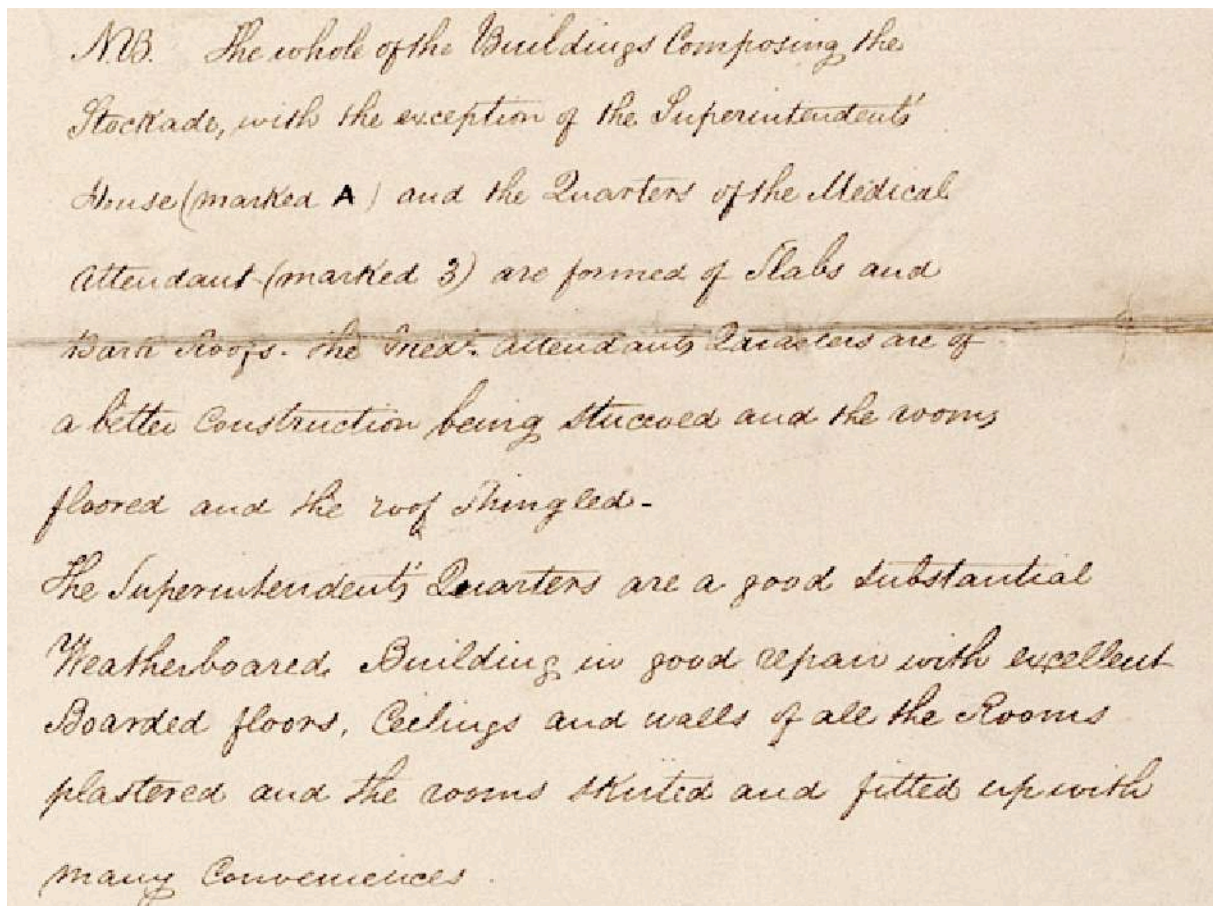 NB. The whole of the Buildings Composing the
Stockade, with the exception of the Superintendents'
House (marked A) and the Quarters of the Medical
Attendant (marked 3) are formed of Slabs and
Bark Roofs. The Med.l Attendants Quarters are of
a better Construction being Stuccoed and the rooms
floored and the roof Shingled -
The Superintendent's Quarters are a good substantial
Weatherboared Building in good repair with excellent
Boarded floors, Ceilings and walls of all the Rooms
plastered and the rooms skirted and fitted up with
many Conveniences.